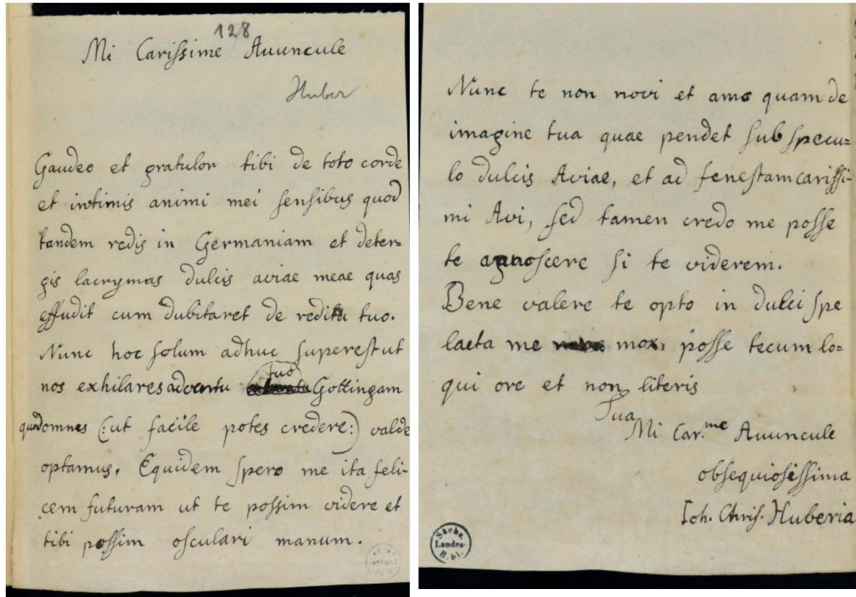 128
Mi Carissime Avuncule
Huber
Gaudeo et gratulor tibi de toto corde
et intimis animi mei sensibus quod
tandem redis in Germaniam et deter=
gis lacrymas dulcis aviae meae quas
effudit cum dubitaret de reditu tuo.
Nunc hoc solum adhuc superest ut
nos exhilares adventu tuo Gottingam
quod omnes (:ut facile potes credere:) valde
optamus. Equidem spero me ita feli=
cem futuram ut te possim videre et
tibi possim osculari manum.
Nunc te non novi et amo quam de
imagine tua quae pendet sub specu=
lo dulcis Aviae, et ad fenestam carissi=
mi Avi, sed tamen credo me posse
te agnoscere si te viderem.
Bene valere te opto in dulci spe
laeta me mox, posse tecum lo=
qui ore et non literis
Tua
Mi Car.me Avuncule
obsequiosissima
Joh. Chris. Huberia
Sächs.
Landes-
Bibl.